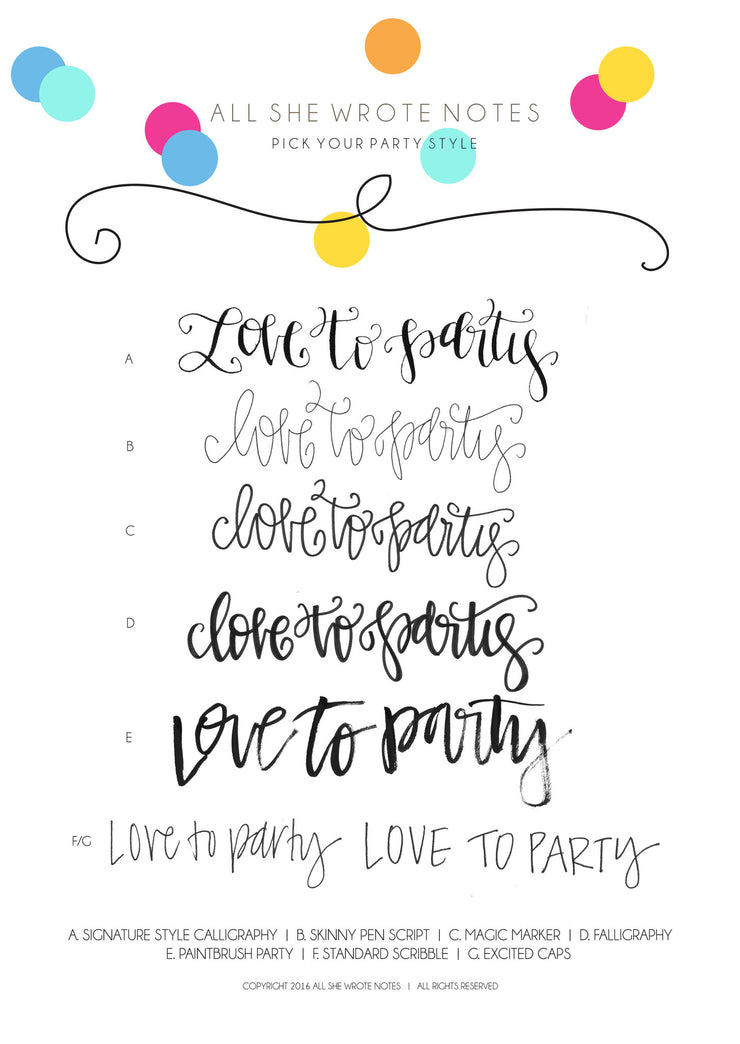 ALL SHE WROTE NOTES
PICK YOUR PARTY STYLE
A Love to party
B love to party
C love to party
D love to party
E Love to party
F/G Love to party LOVE TO PARTY
A. SIGNATURE STYLE CALLIGRAPHY | B. SKINNY PEN SCRIPT | C. MAGIC MARKER | D. FALLIGRAPHY
E. PAINTBRUSH PARTY | F. STANDARD SCRIBBLE | G. EXCITED CAPS
COPYRIGHT 2016 ALL SHE WROTE NOTES | ALL RIGHTS RESERVED